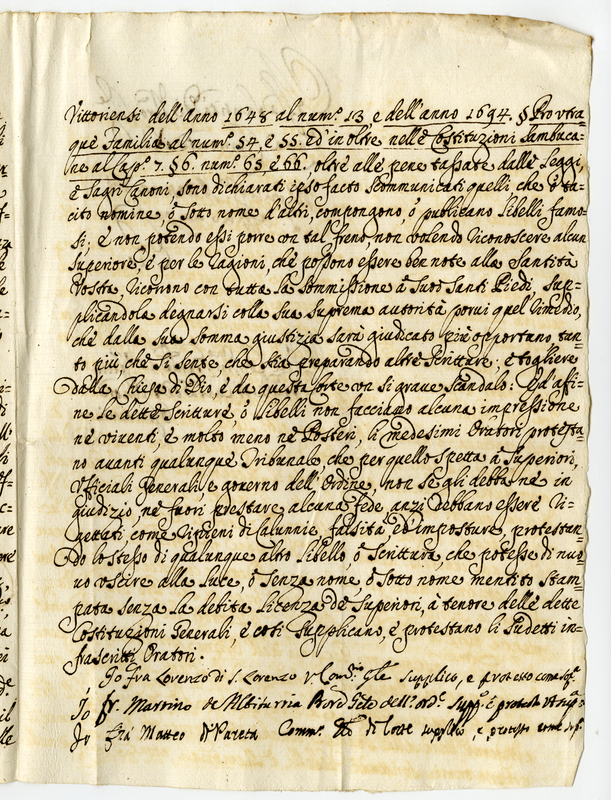 Vittoriensi dell'anno 1648 al num.º 13 e dell'anno 1694. § Pro utra=
que Familia al num.º 54. e 55. ed in oltre nelle Costituzioni Sambuca=
ne al Cap.º 7. § 6. num.º 65 e 66. oltre alle pene tassate dalle Leggi,
e Sagri Canoni sono dichiarati ipso facto scommunicati quelli che ò ta=
cito nomine, ò sotto nome d'altri, compongono, ò publicano libelli famo=
si; e non potendo essi porre con tal freno, non volendo riconoscere alcun
Superiore, e per le ragioni, che possono essere ben note alla Santità
Vostra, ricorrono con tutta la sommissione à suoi Santi Piedi, sup=
plicandola degnarsi colla sua suprema autorità porvi quel rimedio,
che dalla sua somma giustizia sarà giudicato più opportuno tan=
to più, che si sente, che stia preparando altre scritture; e togliere
dalla Chiesa di Dio, e da questa Corte con si grave scandalo: Ed affi=
ne le dette scritture, ò libelli non facciano alcuna impressione
ne viventi, e molto meno ne Posteri, li medesimi Oratori protesta=
no avanti qualunque Tribunale, che per quello spetta à Superiori,
Officiali Generali, e governo dell'Ordine, non se gli debba nè in
giudizio, nè fuori prestare alcuna fede, anzi debbano essere ri=
gettati, come ripieni di calunnie, falsità, ed imposture, protestan=
do lo stesso di qualunque altro libello, ò scrittura, che potesse di nuo=
vo uscire alla luce, ò senza nome, ò sotto nome mentito stam=
pata senza la debita licenza de Superiori, à tenore delle dette
Costituzioni Generali, e così supplicano, e protestano li sudetti in=
frascritti Oratori.
Io fra Lorenzo di S. Lorenzo supplico, e protesto come sop.ª
Io fr. Martino de dell'ord.e supp.º e protesto
Io frà Matteo d. Pareta Comm.º di Corte supplico, e protesto come sop.ª